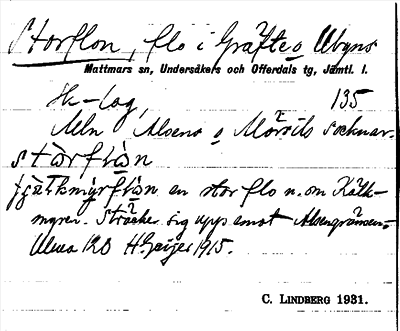 Storflon, flo i Gräfte o Ubyns
Mattmars sn, Undersåkers och Offerdals tg, Jämtl. l.
Hk-lag, 135
Mln Alsens o Mörsils socknar.
stōrflōn
en stor flo n. om Kälk-
myren. Sträcker sig upp emot Alsengränsen.
Alma 120 H. Geijer 1915.
C. LINDBERG 1931.